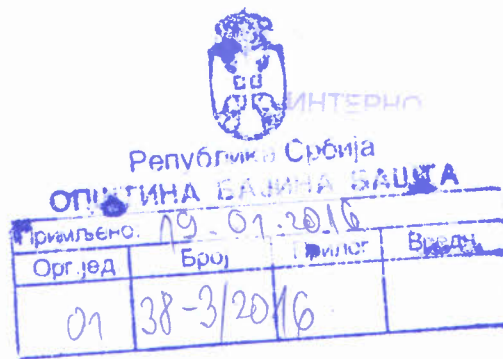 ИНТЕРНО
Република Србија
ОПШТИНА БАЈИНА БАШТА
Примљено: 19-01-2016
Орг.јед Број Прилог Вредн.
01 38-3/2016